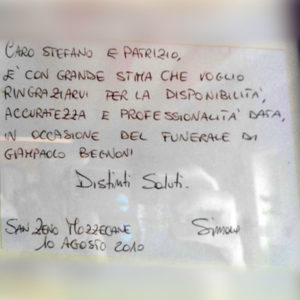 CARO STEFANO E PATRIZIO,
E' CON GRANDE STIMA CHE VOGLIO
RINGRAZIARVI PER LA DISPONIBILITA',
ACCURATEZZA E PROFESSIONALITA' DATA,
IN OCCASIONE DEL FUNERALE DI
GIAMPAOLO BEGNONI
Distinti Saluti.
SAN ZENO MOZZECANE Simone
10 AGOSTO 2010